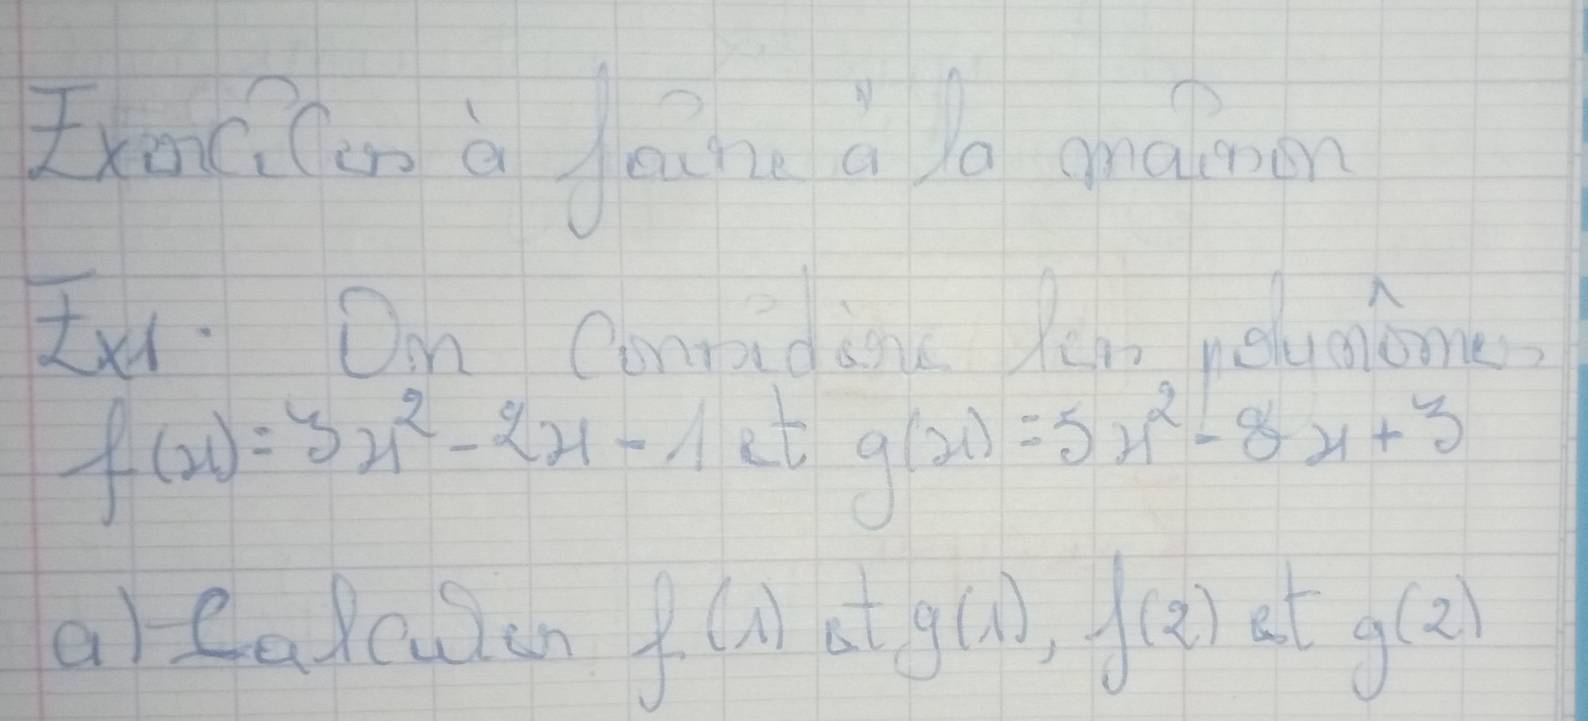 Exercices à faire à la maison
Ex1. On considère les polynômes
f(x) = 3x² - 2x - 1 et g(x) = 5x² - 8x + 3
a) Calculer f(1) et g(1), f(2) et g(2)